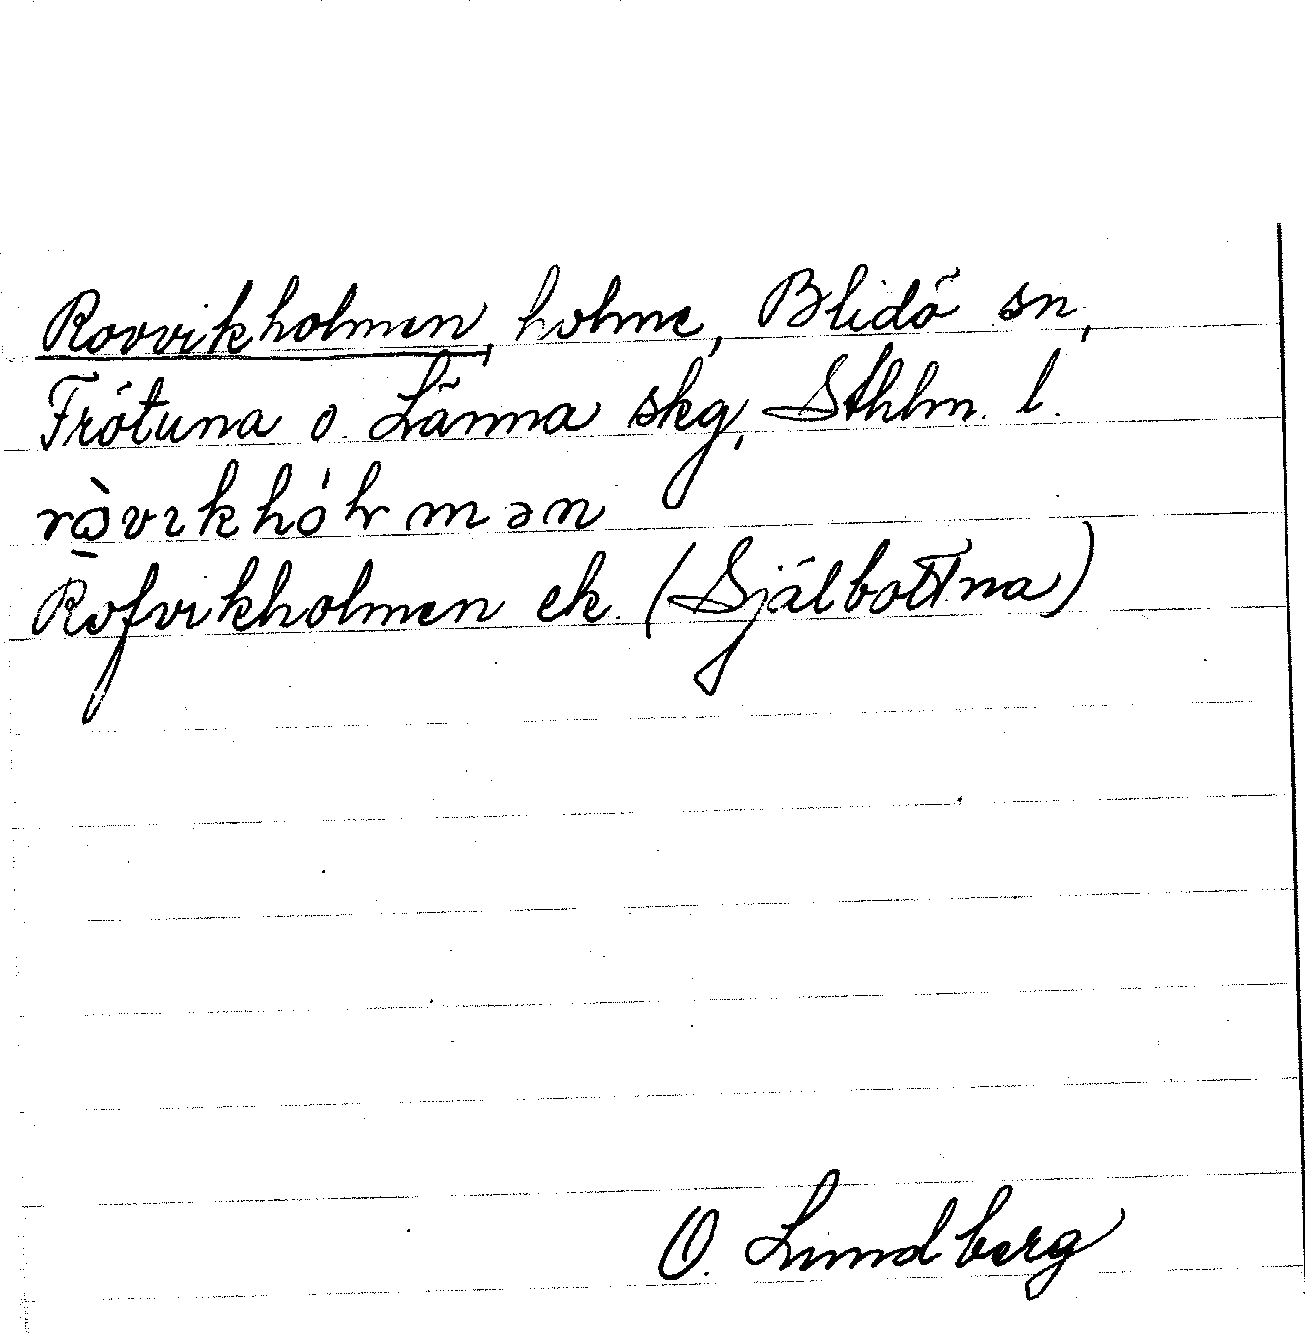 Rovvikholmen, holme, Blidö sn,
Frötuna o. Länna skg, Sthlm. l.
rò̱vıkhólrmən
Rofvikholmen ek. (Själbottna)
O. Lundberg